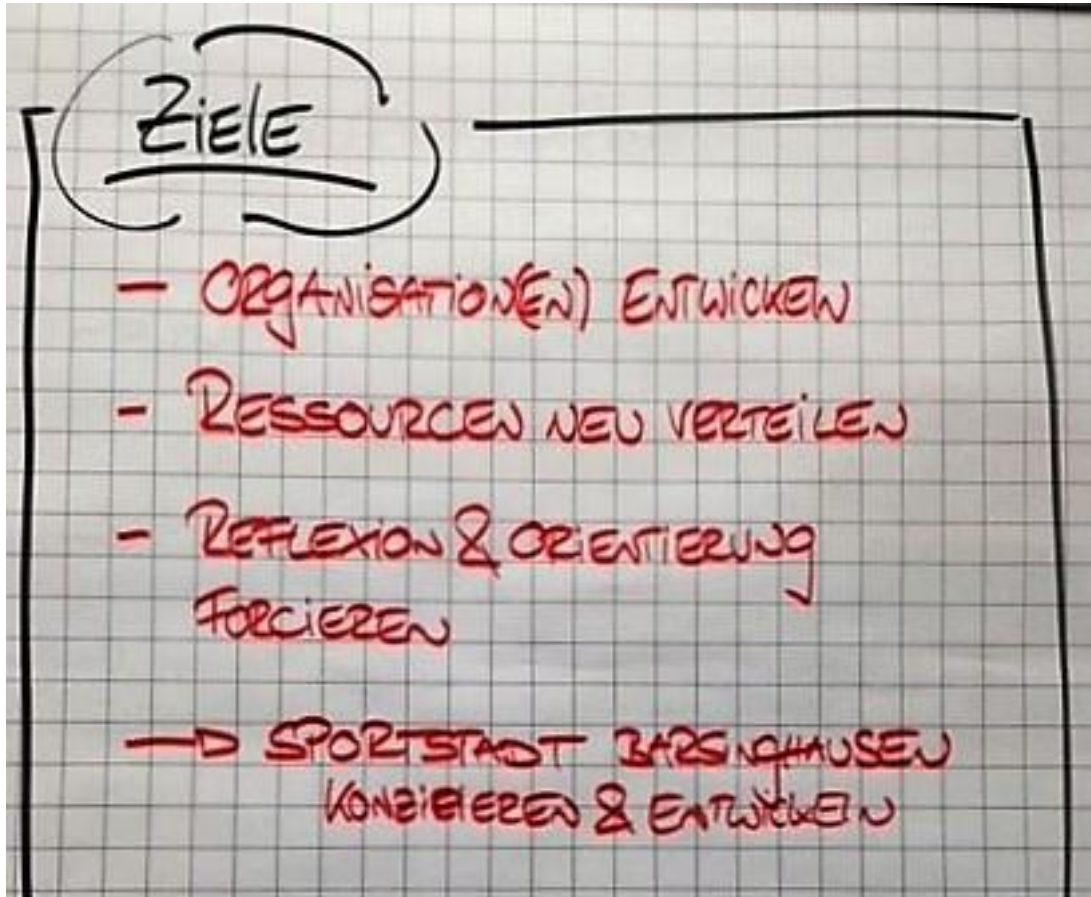 Ziele
- ORGANISATION(EN) ENTWICKELN
- RESSOURCEN NEU VERTEILEN
- REFLEXION & ORIENTIERUNG
FORCIEREN
→ SPORTSTADT BARSINGHAUSEN
KONZIPIEREN & ENTWICKELN